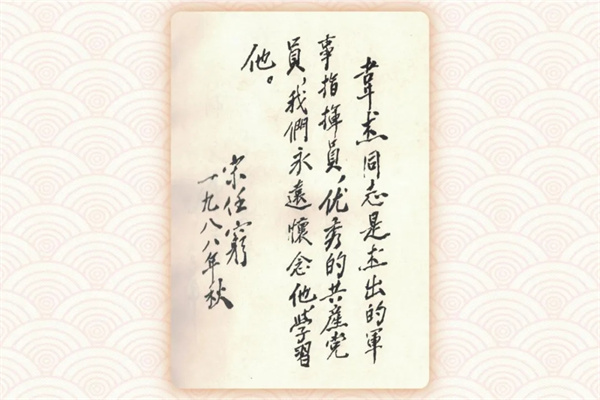 韋杰同志是杰出的軍
事指揮員，优秀的共產党
員，我們永遠懷念他學習
他。
宋任窮
一九八八年秋